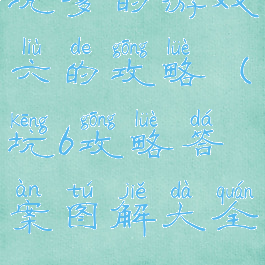 坑爹的游戏
liù de gōng lüè
六的攻略(
kēng gōng lüè dá
坑6攻略答
àn tú jiě dà quán
案图解大全